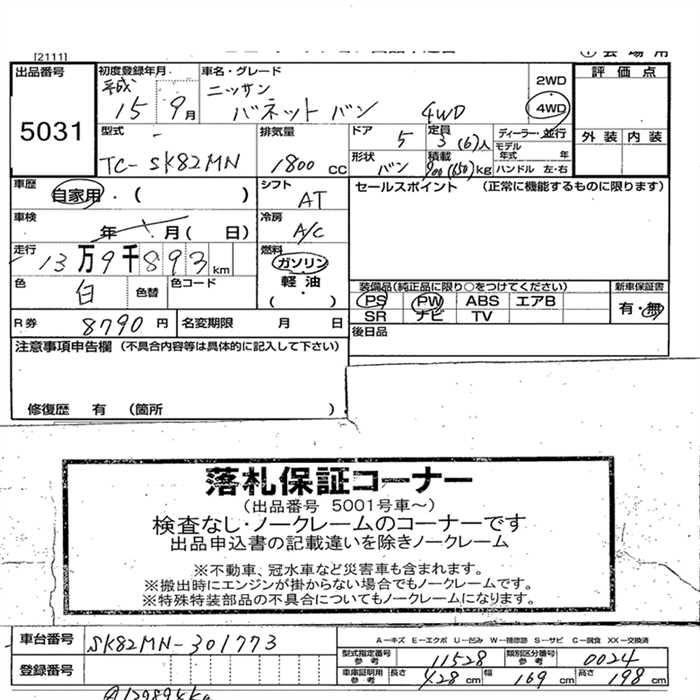 [2111]
会場用
出品番号 5031
初度登録年月 平成 15 9月
車名・グレード ニッサン バネットバン 4WD
2WD
4WD
評価点
外装 内装
型式 TC-SK82MN
排気量 1800 CC
ドア 5
定員 3(6)人
ディーラー・並行
モデル年式 年
形状 バン
積載 900(650)kg
ハンドル 左・右
車歴 自家用・( )
シフト AT
セールスポイント (正常に機能するものに限ります)
車検 年 月(日)
冷房 A/C
走行 13万9千893km
燃料 ガソリン
軽油
(・)
色 白 色替 色コード
装備品(純正品に限り○をつけてください)
新車保証書
PS PW ABS エアB
有・無
SR ナビ TV
R券 8790円 名変期限 月 日
後日品
注意事項申告欄 (不具合内容等は具体的に記入して下さい)
修復歴 有 (箇所 )
落札保証コーナー
(出品番号 5001号車～)
検査なし・ノークレームのコーナーです
出品申込書の記載違いを除きノークレーム
※不動車、冠水車など災害車も含まれます。
※搬出時にエンジンが掛からない場合でもノークレームです。
※特殊特装部品の不具合についてもノークレームになります。
車台番号 SK82MN-301773
A-キズ E-エクボ U-凹み W-補修跡 S-サビ C-腐食 XX-交換済
型式指定番号 参考 11528 類別区分番号 参考 0024
登録番号
車庫証明用 参考 長さ 428cm 幅 169cm 高さ 198cm